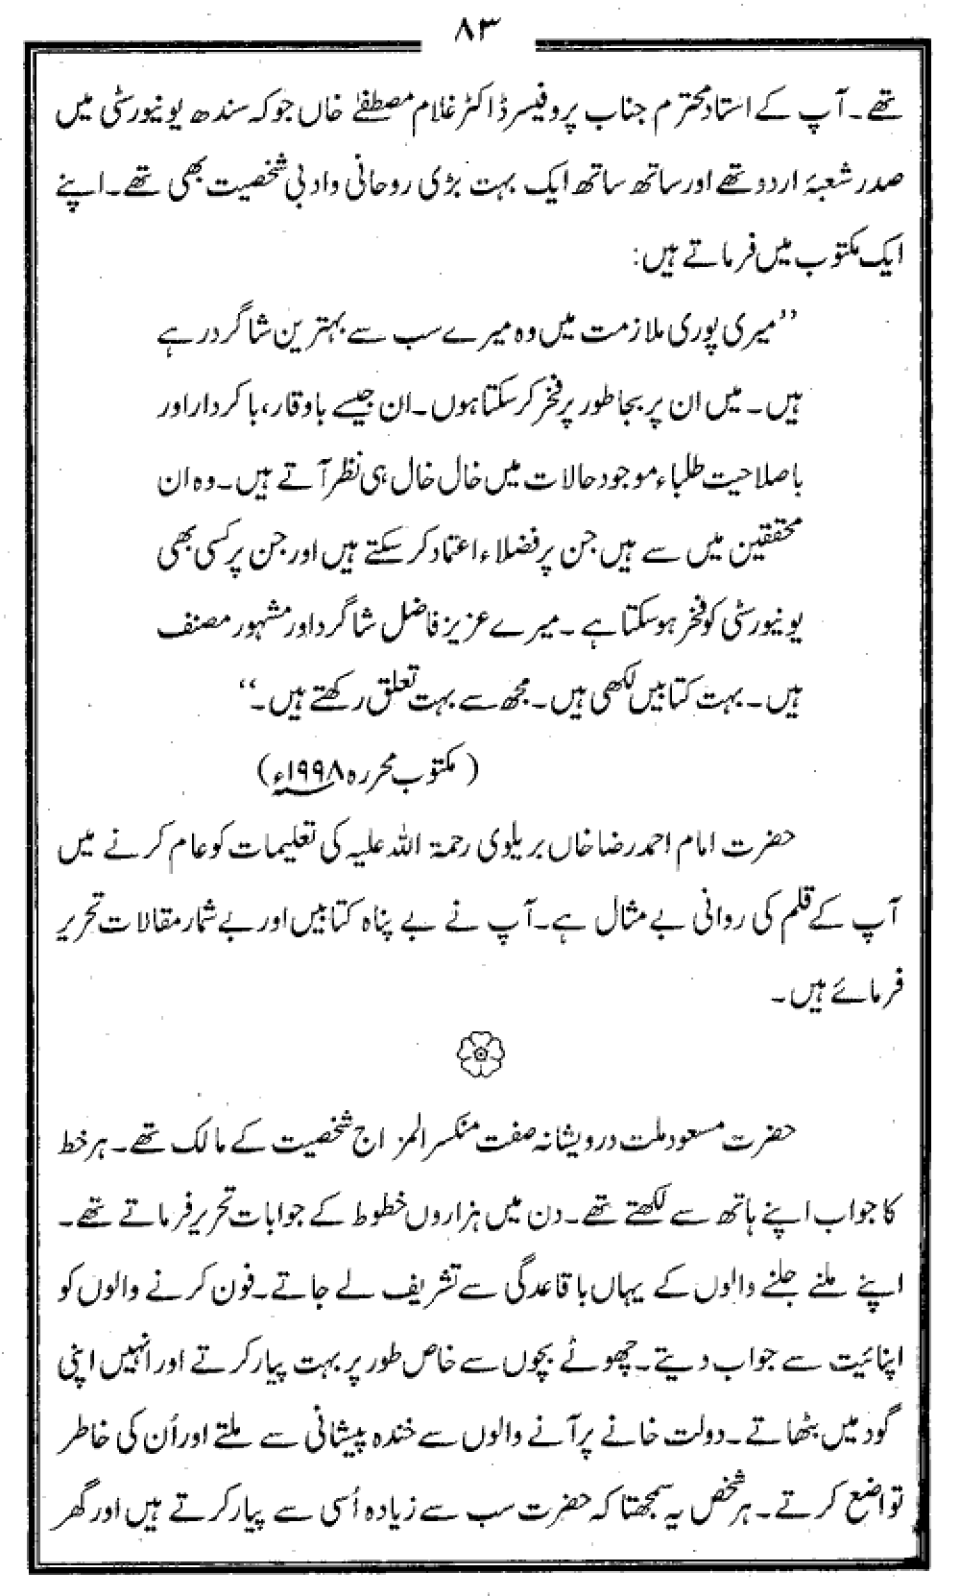 ۸۳
تھے۔ آپ کے استاد محترم جناب پروفیسر ڈاکٹر غلام مصطفےٰ خاں جو کہ سندھ یونیورسٹی میں
صدر شعبۂ اردو تھے اور ساتھ ساتھ ایک بہت بڑی روحانی وادبی شخصیت بھی تھے۔ اپنے
ایک مکتوب میں فرماتے ہیں:
’’میری پوری ملازمت میں وہ میرے سب سے بہترین شاگرد رہے
ہیں۔ میں ان پر بجا طور پر فخر کر سکتا ہوں۔ ان جیسے باوقار، باکردار اور
باصلاحیت طلباء موجود حالات میں خال خال ہی نظر آتے ہیں۔ وہ ان
محققین میں سے ہیں جن پر فضلاء اعتماد کر سکتے ہیں اور جن پر کسی بھی
یونیورسٹی کو فخر ہو سکتا ہے۔ میرے عزیز فاضل شاگرد اور مشہور مصنف
ہیں۔ بہت کتابیں لکھی ہیں۔ مجھ سے بہت تعلق رکھتے ہیں۔‘‘
(مکتوب محررہ ۱۹۹۸ء)
حضرت امام احمد رضا خاں بریلوی رحمۃ اللہ علیہ کی تعلیمات کو عام کرنے میں
آپ کے قلم کی روانی بے مثال ہے۔ آپ نے بے پناہ کتابیں اور بے شمار مقالات تحریر
فرمائے ہیں۔
حضرت مسعود ملت درویشانہ صفت منکسر المزاج شخصیت کے مالک تھے۔ ہر خط
کا جواب اپنے ہاتھ سے لکھتے تھے۔ دن میں ہزاروں خطوط کے جوابات تحریر فرماتے تھے۔
اپنے ملنے جلنے والوں کے یہاں باقاعدگی سے تشریف لے جاتے۔ فون کرنے والوں کو
اپنائیت سے جواب دیتے۔ چھوٹے بچوں سے خاص طور پر بہت پیار کرتے اور انہیں اپنی
گود میں بٹھاتے۔ دولت خانے پر آنے والوں سے خندہ پیشانی سے ملتے اور اُن کی خاطر
تواضع کرتے۔ ہر شخص یہ سمجھتا کہ حضرت سب سے زیادہ اُسی سے پیار کرتے ہیں اور گھر